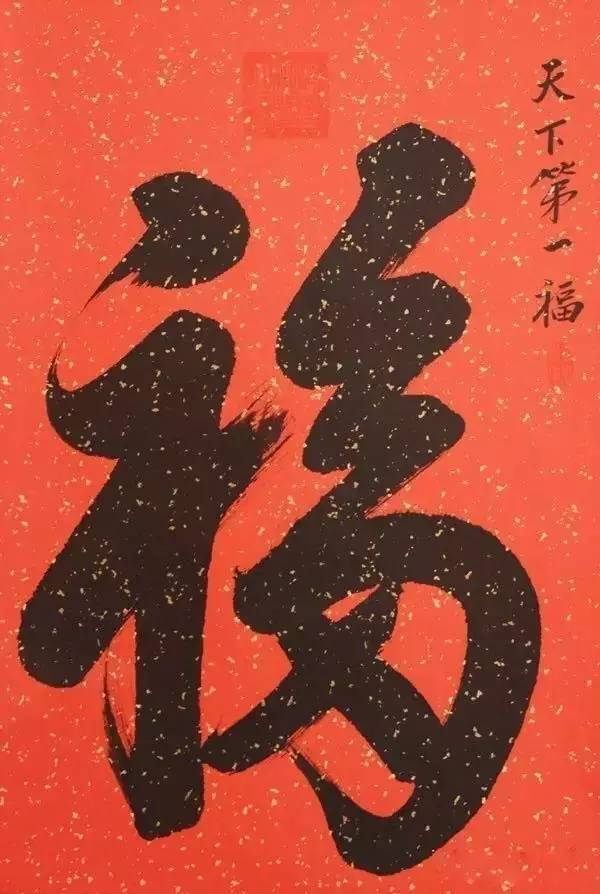 天下第一福
福